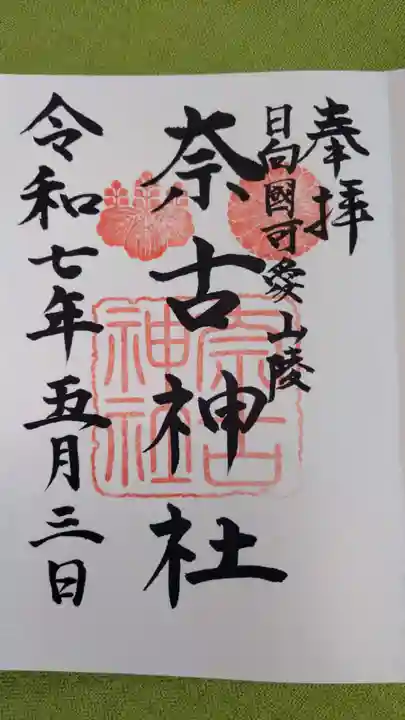 奉拝
日向國可愛山陵
奈古神社
奈古
神社
令和七年五月三日